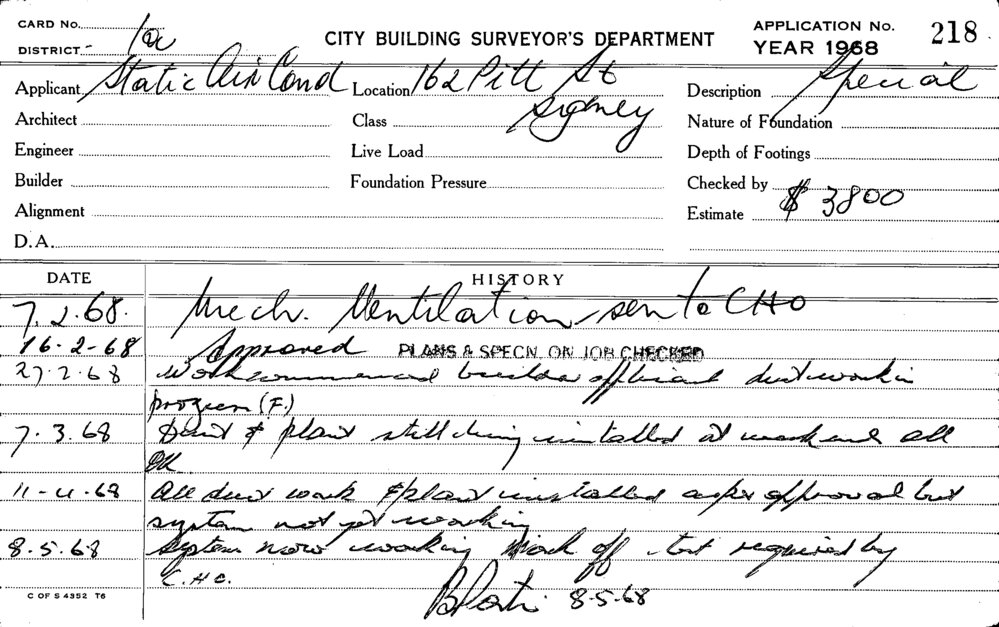 CARD No.
DISTRICT-
CITY BUILDING SURVEYOR'S DEPARTMENT
APPLICATION No. 218
YEAR 1968
Applicant Static Air Cond
Location 162 Pitt St
Sydney
Description Special
Architect
Class
Nature of Foundation
Engineer
Live Load
Depth of Footings
Builder
Foundation Pressure
Checked by
Alignment
Estimate $ 3800
D.A.
DATE HISTORY
7.2.68. Mech. Ventilation sen to CHO
16-2-68 Approved PLANS & SPECN. ON JOB CHECKED
27.2.68 Work commenced builder efficient duct work in
progress (F.)
7.3.68 Duct & plant still being installed at weekend all
OK.
11-4-68 All duct work & plant installed as per approval but
system not yet working
8.5.68 System now working Mark off test required by
C.H.O.
8-5-68
C OF S 4352 T6